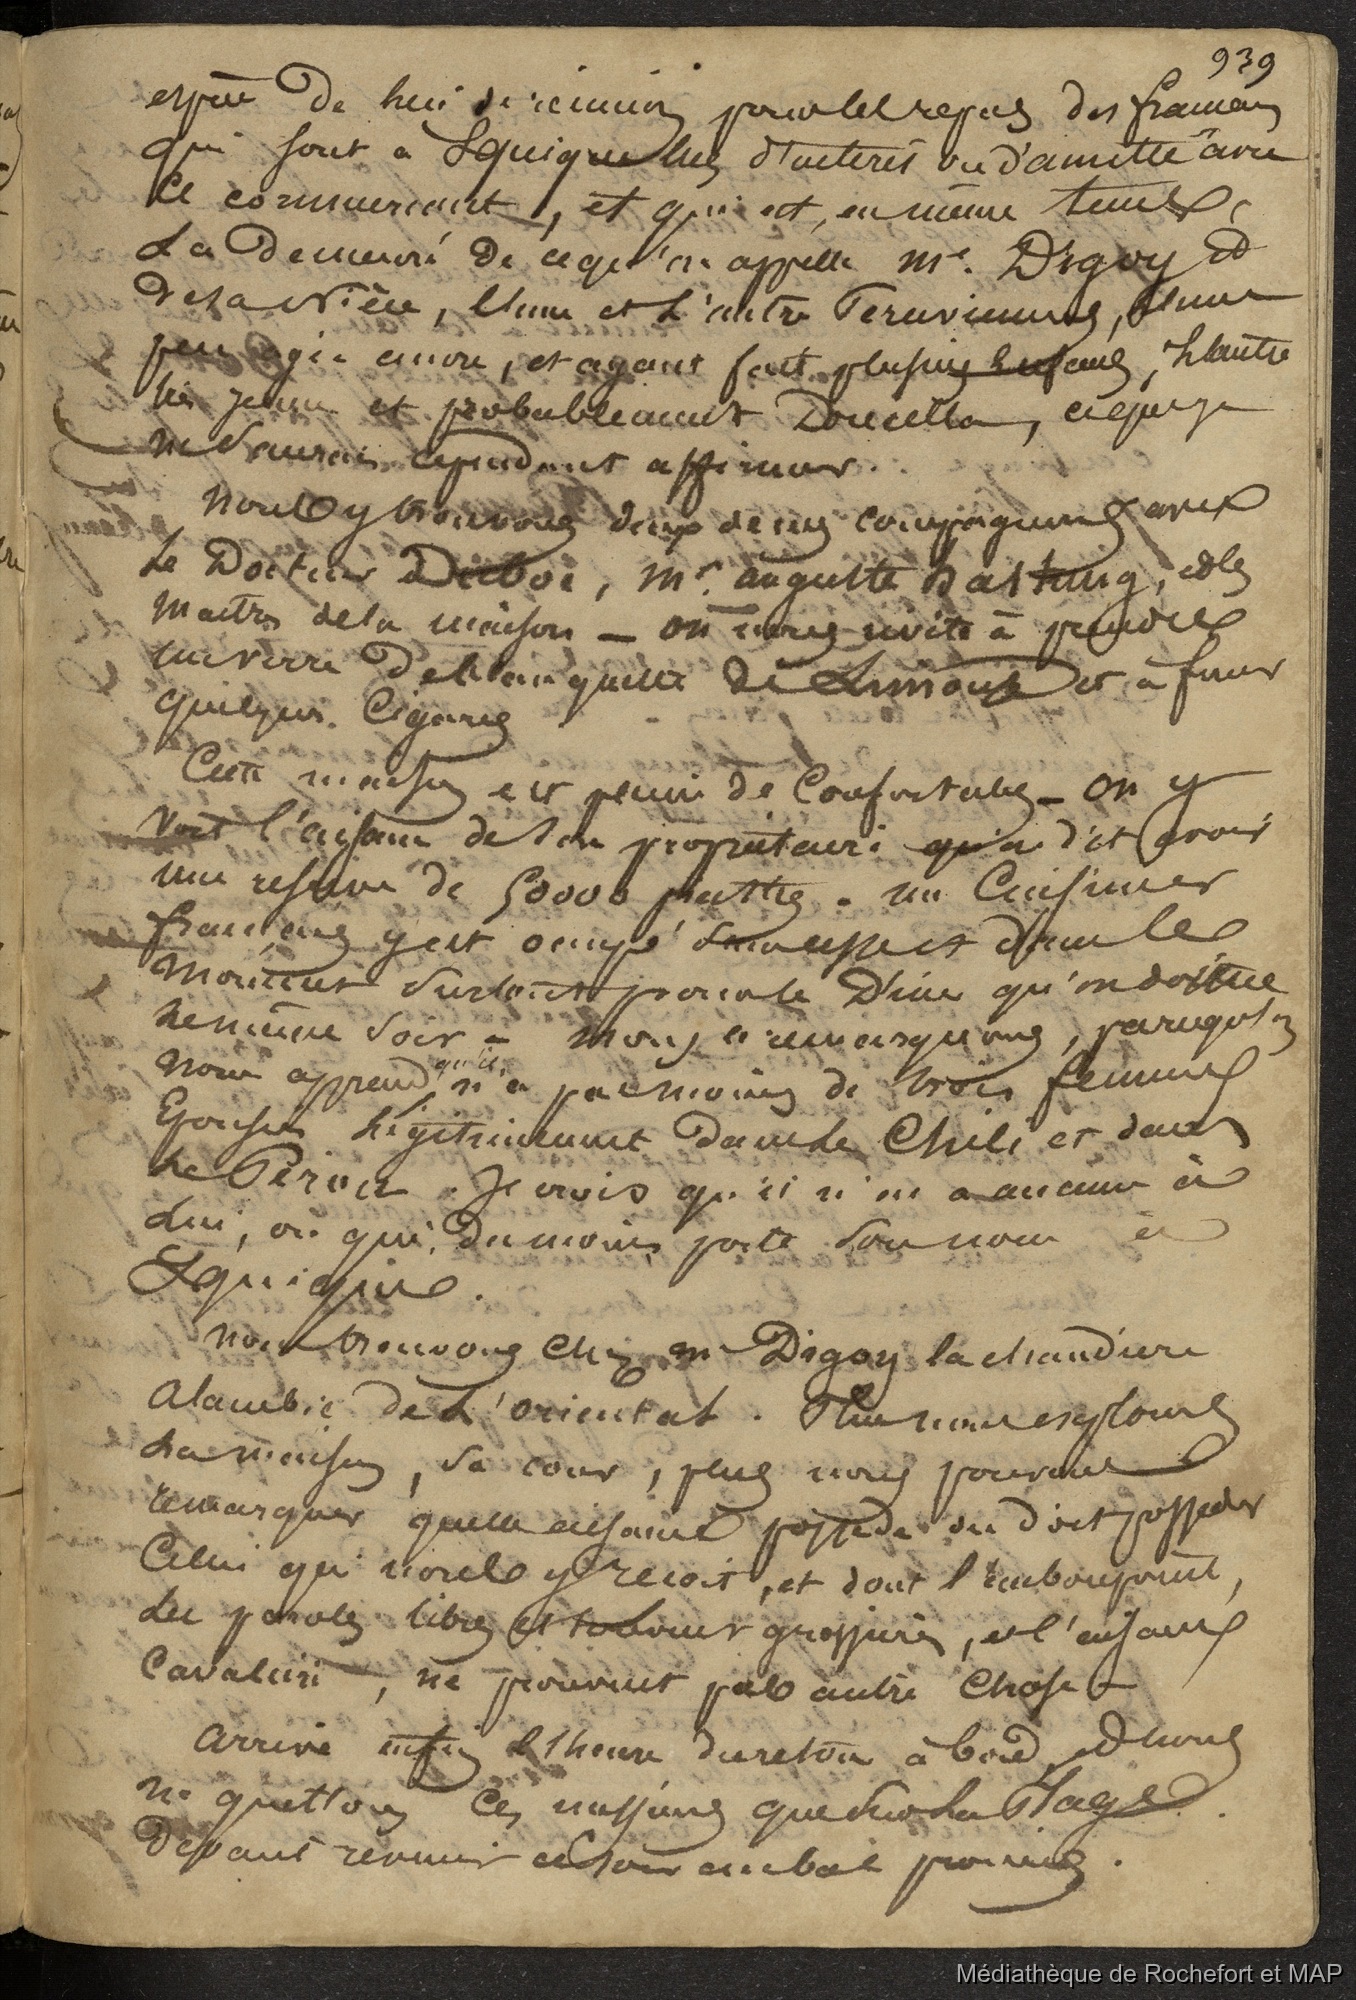 939
espèce de lieu de réunion pour les repas des français
qui sont à Iquique liés d'intérêt ou d'amitié avec
le commerçant, et qui est, en même temps,
la demeure de ce qu'on appelle Me. Digoy et
de sa nièce, l'une et l'autre Peruviennes, l'une
peu agée encore, et ayant fait plusieurs enfans, l'autre
très jeune et probablement Doucella, ce que je
ne saurais cependant affirmer.
nous y trouvons deux de nos compagnons avec
le Docteur Dubois, Mr. auguste Bastung, et les
maitres de la maison — on nous invite à prendre
un verre de blanquette de Limoux et à fumer
quelques Cigares
Cette maison est pleine de Confortable — on y
voit l'aisance de son propriétaire qui a dit avoir
une reserve de 50000 piastres. un Cuisinier
français y est occupé sans cesse et dans le
moment surtout pour le Diner qu'on donne
le même soir — nous remarquons,
nous apprend qu'il n'a pas moins de trois femmes
Epousées légitimement dans le Chili et dans
le Pérou. Je crois qu'il n'en a aucune à
lui, ou qui, du moins porte son nom à
Iquique.
nous trouvons chez mr Digoy la chaudiere
alambic de L'oriental. Plus nous explorons
la maison, sa cour, plus nous pouvons
remarquer quelle aisance possede ou doit posseder
Celui qui nous y reçoit, et dont l'embonpoint,
les paroles libres et souvent grossières, et l'aisance
Cavalière, ne prouvent pas autre chose —
arrive enfin l'heure du retour à bord, et nous
ne quittons ces messieurs que sur la Plage.
devant revenir ce soir au bal promis.
Médiathèque de Rochefort et MAP